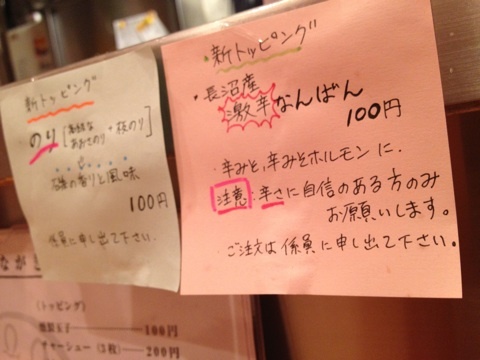 新トッピング
のり [高級な あおさのり+桜のり]
磯の香りと風味
100円
係員に申し出て下さい.
新トッピング
・長沼産
激辛なんばん
100円
・辛みそ,辛みそホルモンに.
注意.辛さに自信のある方のみ
お願いします。
・ご注文は係員に申し出て下さい。
(トッピング)
燻製玉子――――100円
チャーシュー(3枚)――200円